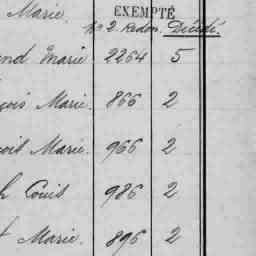 Marie. EXEMPTÉ
No 2. Redon. Décédé.
Marie 2254 5
Marie. 866 2
Marie. 966 2
Louis 986 2
Marie. 896 2